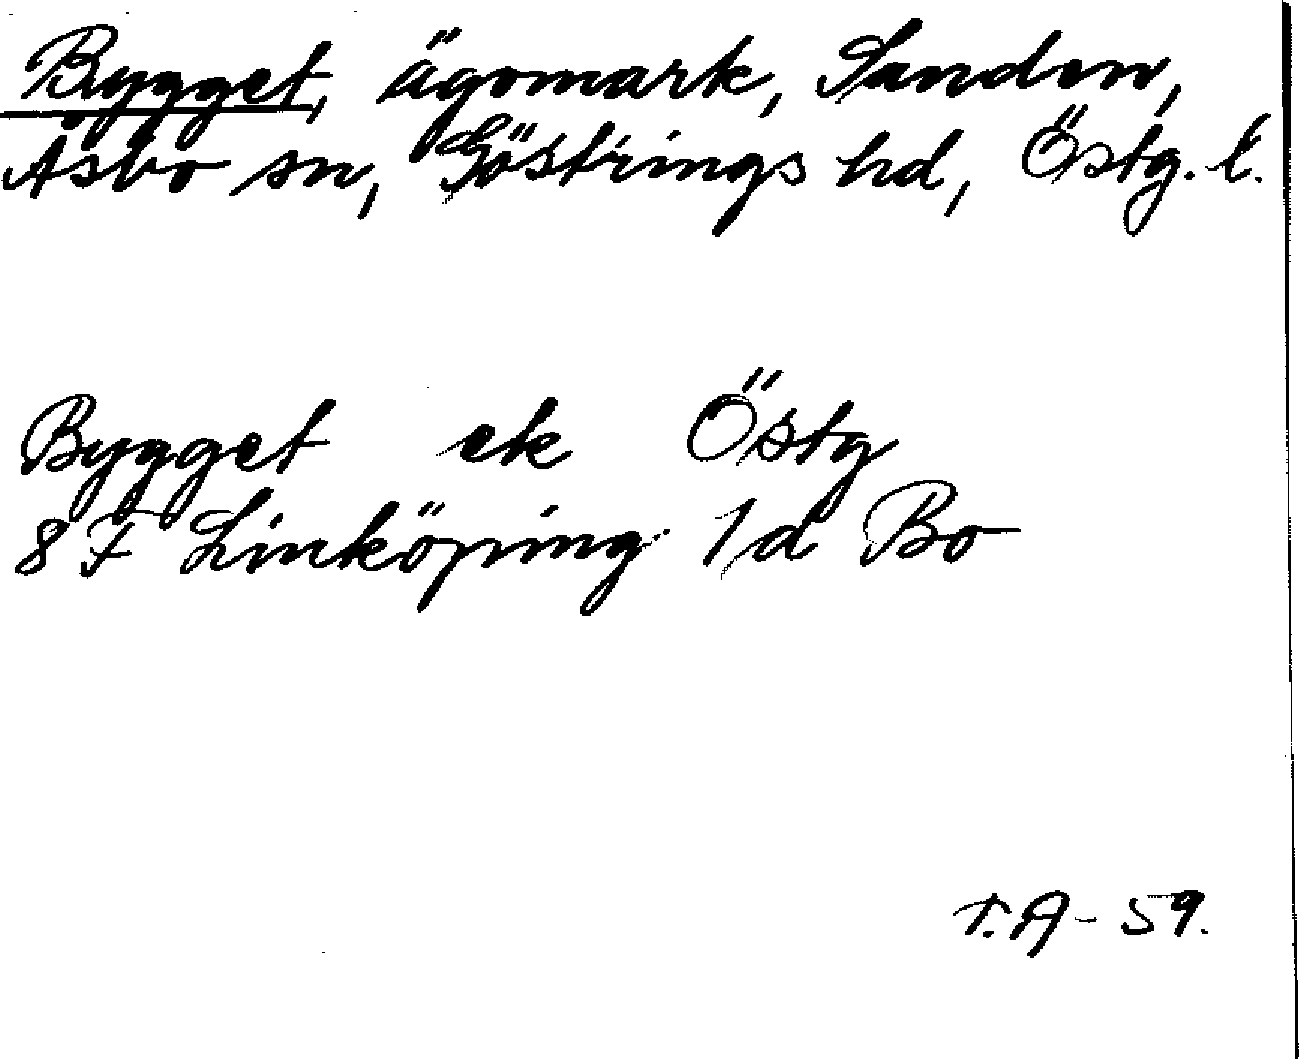 Bygget, ägomark, Sanden,
Åsbo sn, Göstrings hd, Östg. l.
Bygget ek Östg
8 F Linköping 1 d Bo
T.A - 59.